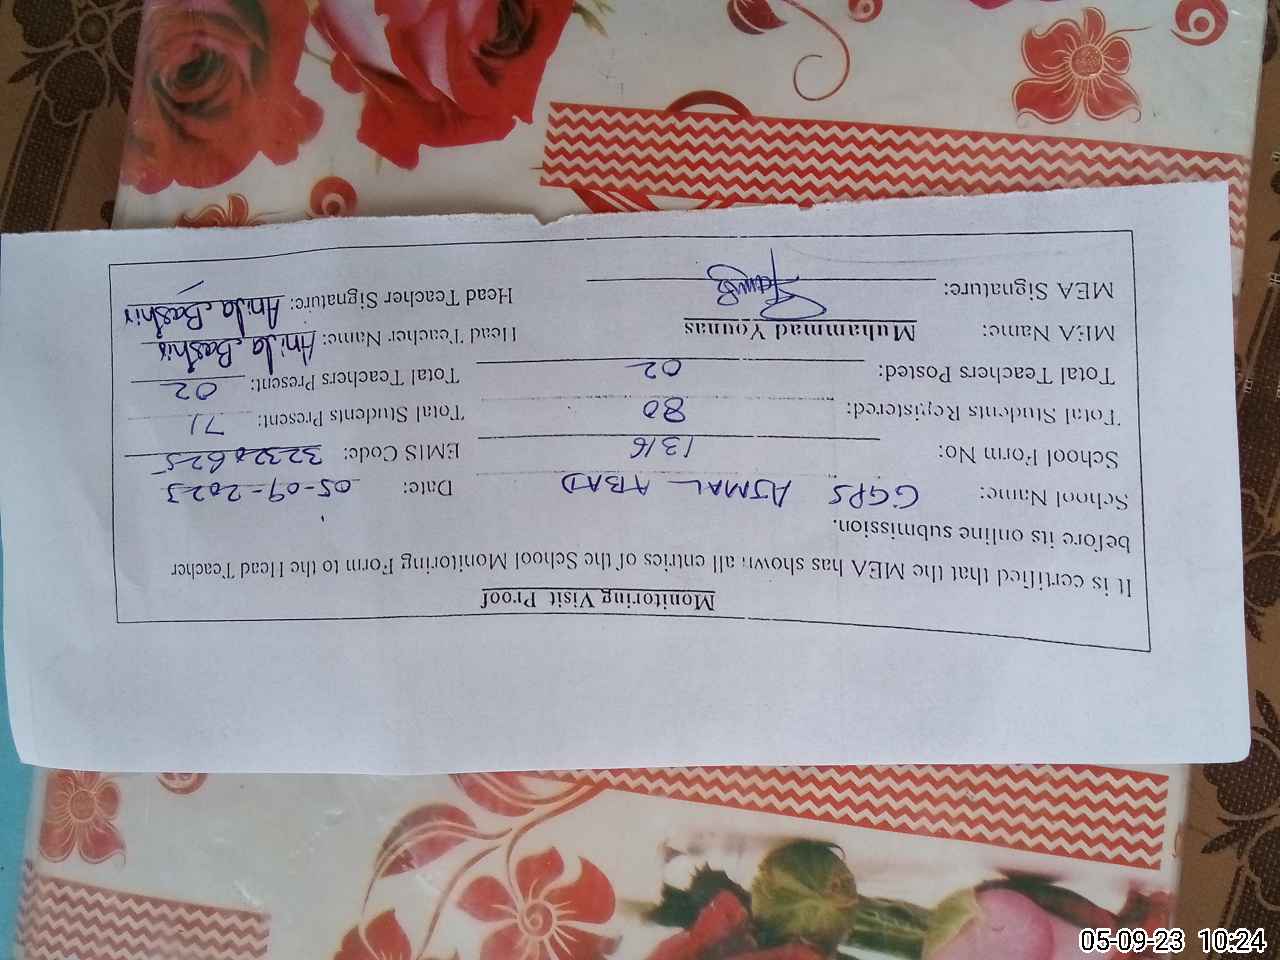 Monitoring Visit Proof
It is certified that the MEA has shown all entries of the School Monitoring Form to the Head Teacher
before its online submission.
School Name: GGPS AJMAL ABAD Date: 05-09-2023
School Form No: 1316 EMIS Code: 32320625
Total Students Registered: 80 Total Students Present: 71
Total Teachers Posted: 02 Total Teachers Present: 02
MEA Name: Muhammad Younas Head Teacher Name: Anila Bashir
MEA Signature: Head Teacher Signature: Anila Bashir
05-09-23 10:24